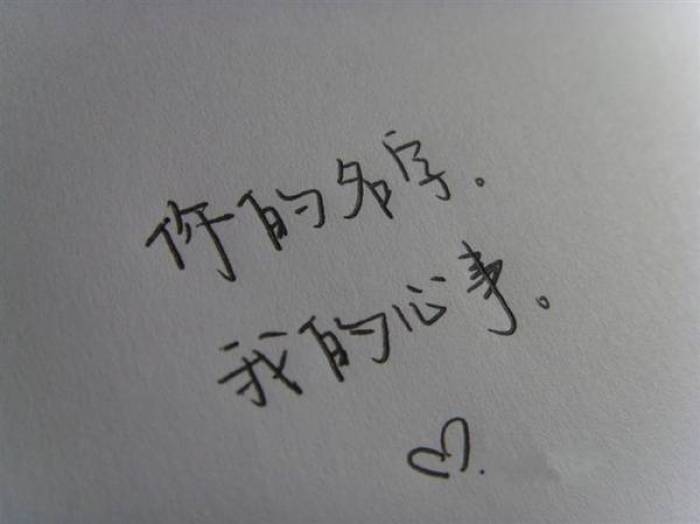 你的名字.
我的心事。
♡.